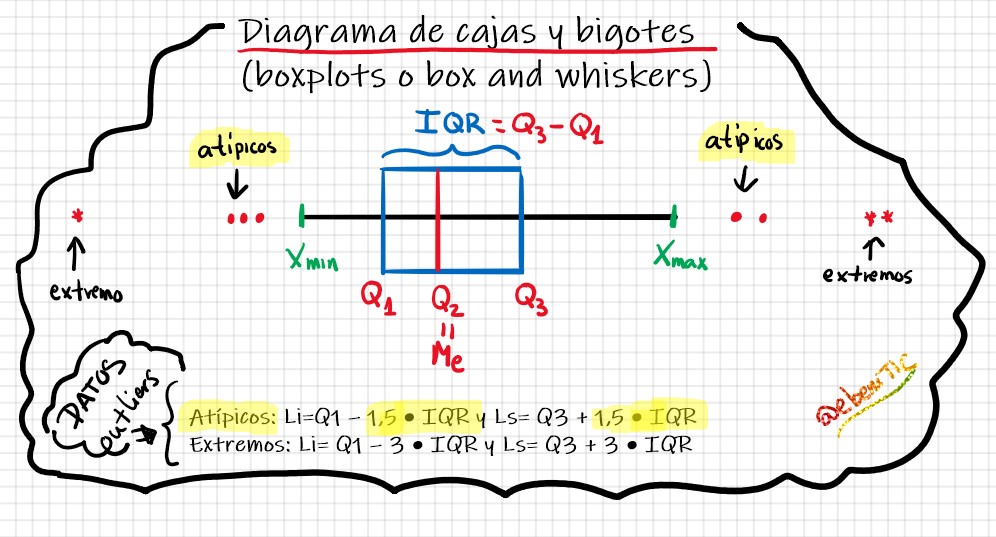 Diagrama de cajas y bigotes
(boxplots o box and whiskers)
IQR = Q3 - Q1
atípicos
atípicos
Xmin
Xmax
extremo
extremos
Q1
Q2
Q3
=
Me
DATOS
outliers
@ebeniTIC
Atípicos: Li=Q1 - 1,5 • IQR y Ls= Q3 + 1,5 • IQR
Extremos: Li= Q1 - 3 • IQR y Ls= Q3 + 3 • IQR